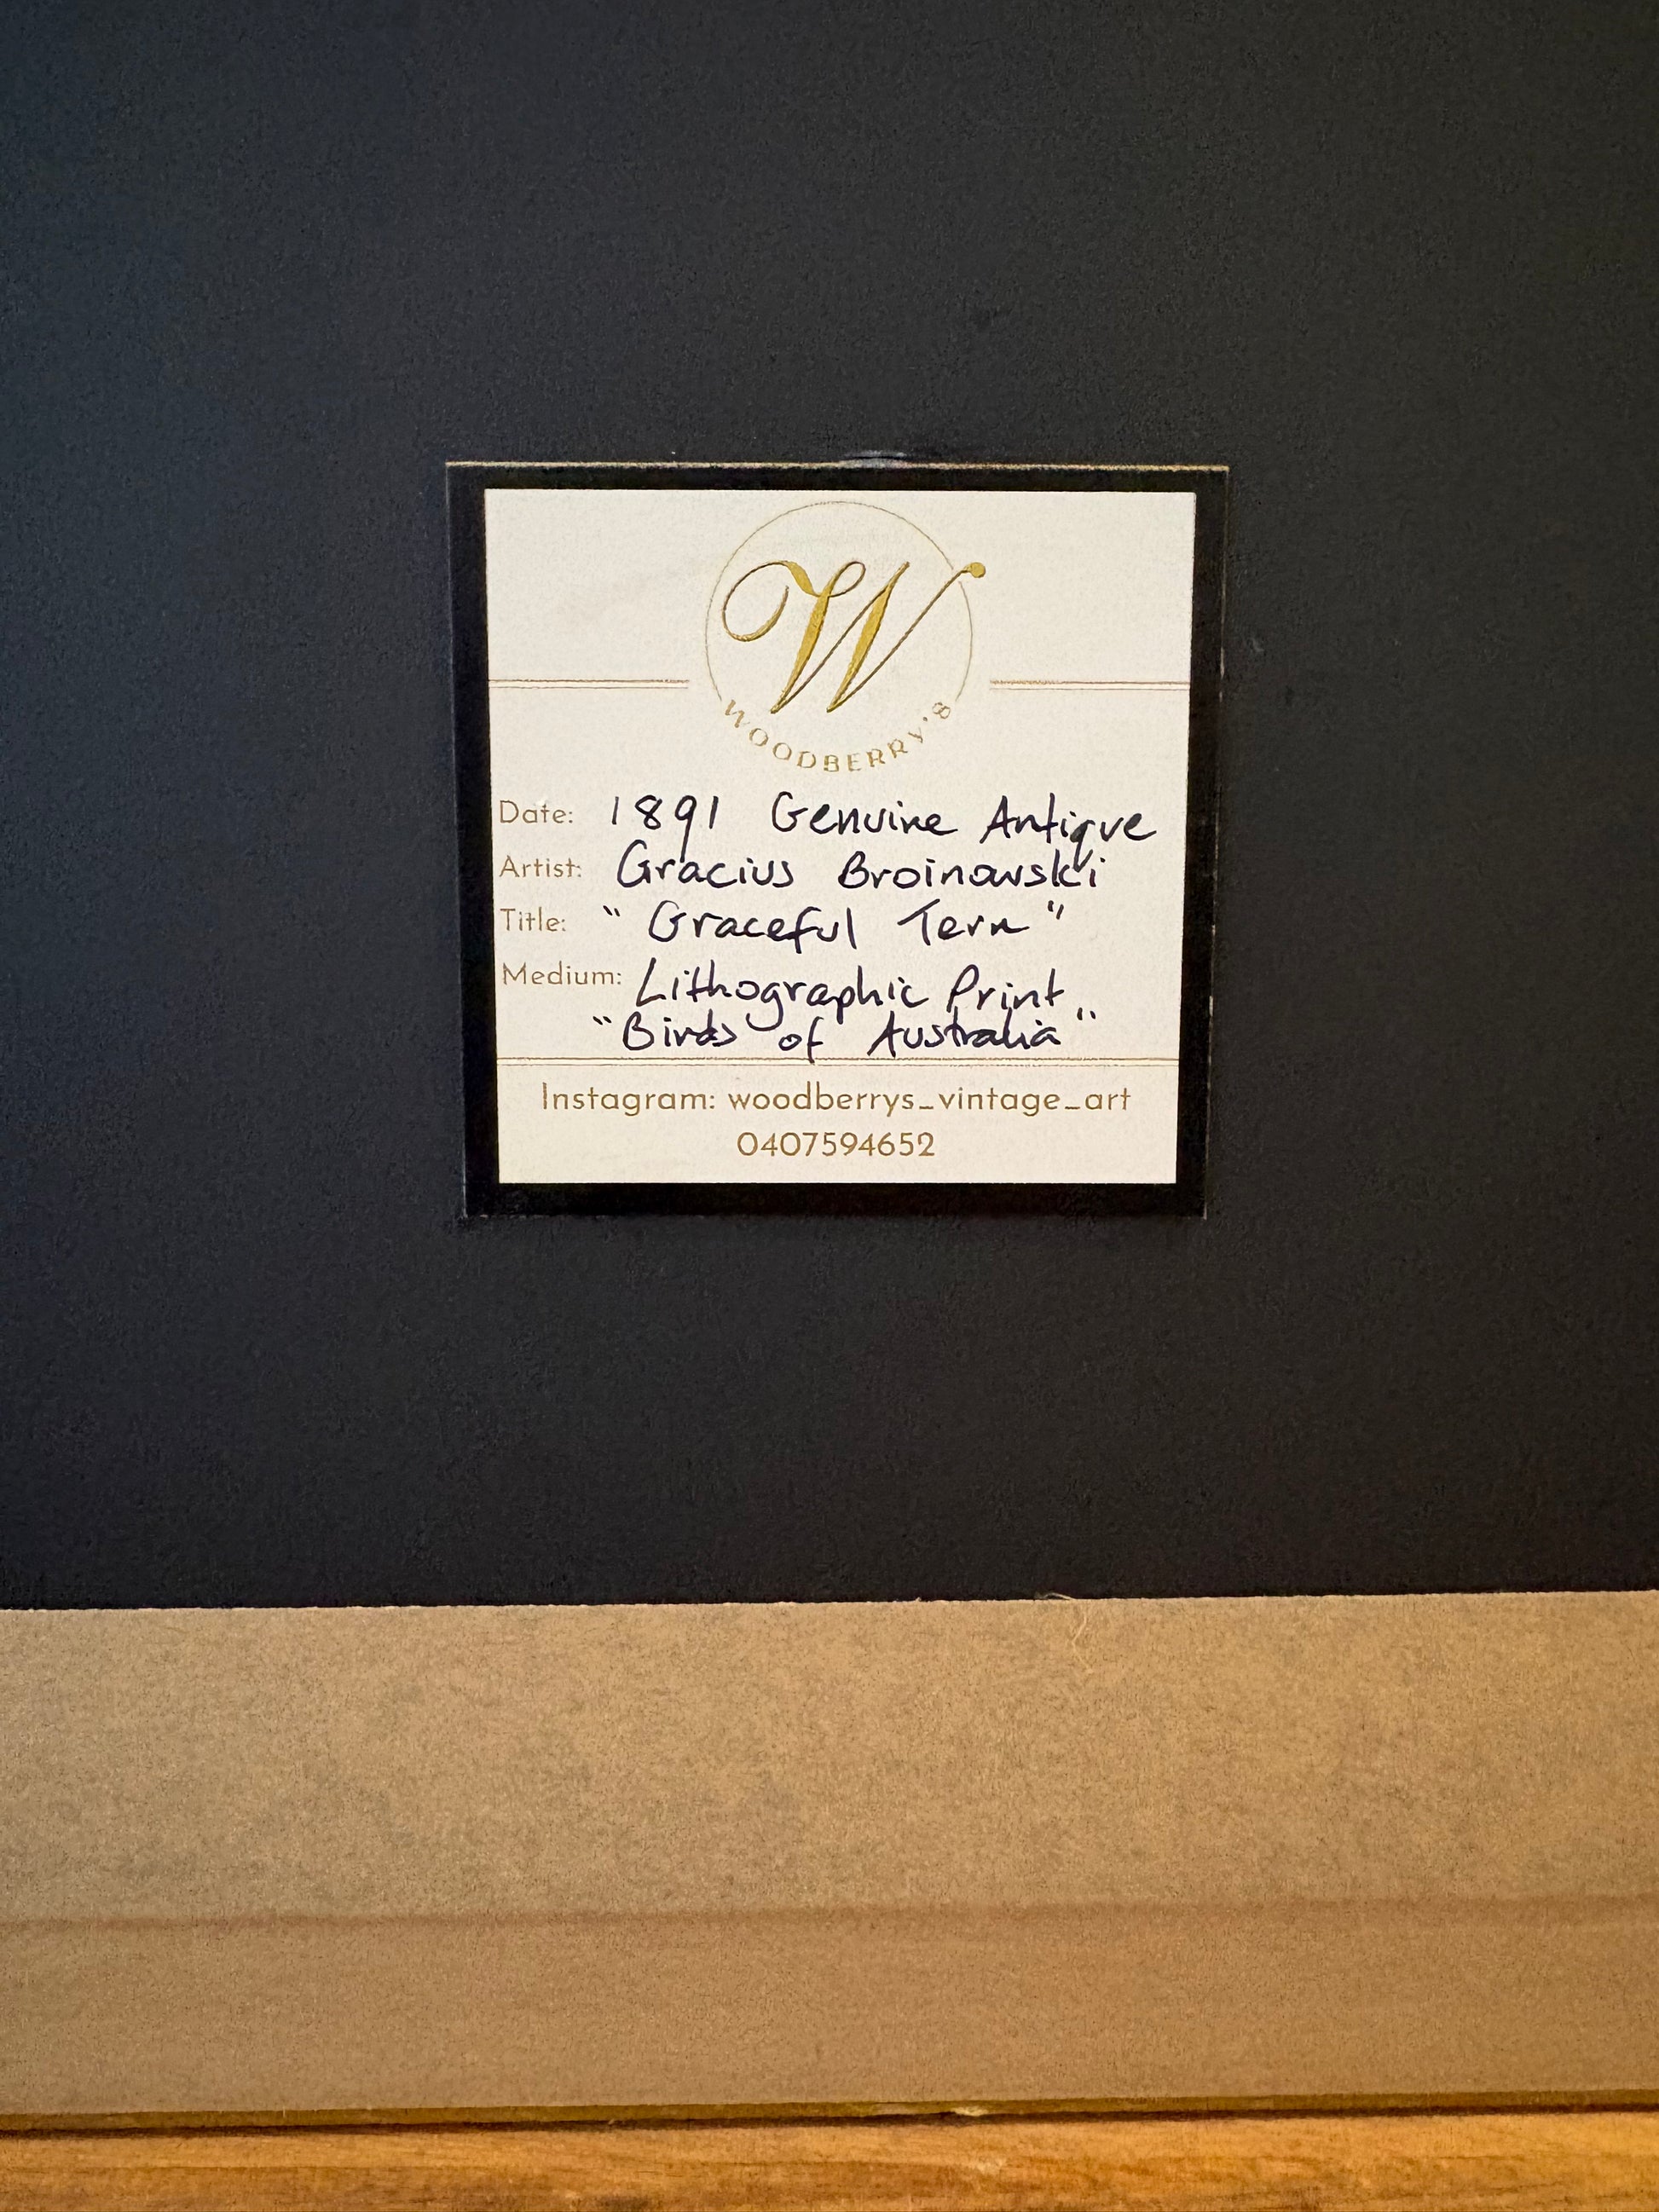 W
WOODBERRY'S
Date: 1891 Genuine Antique
Artist: Gracius Broinowski
Title: "Graceful Tern"
Medium: Lithographic Print
"Birds of Australia"
Instagram: woodberrys_vintage_art
0407594652